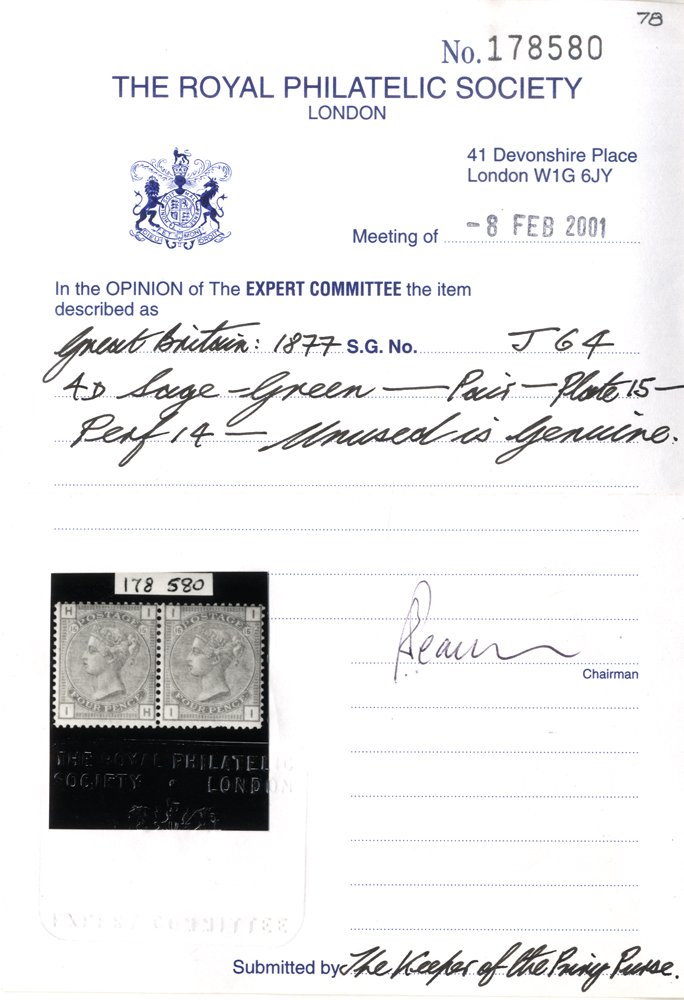 78
No. 178580
THE ROYAL PHILATELIC SOCIETY
LONDON
41 Devonshire Place
London W1G 6JY
Meeting of -8 FEB 2001
In the OPINION of The EXPERT COMMITTEE the item
described as
Great Britain: 1877 S.G. No. J64
4D Sage-Green — Pair — Plate 15 —
Perf 14 — Unused is Genuine.
178 580
H I I I
POSTAGE POSTAGE
15 15 15 15
FOUR PENCE FOUR PENCE
I H I I
Chairman
THE ROYAL PHILATELIC
SOCIETY · LONDON
Submitted by The Keeper of the Privy Purse.